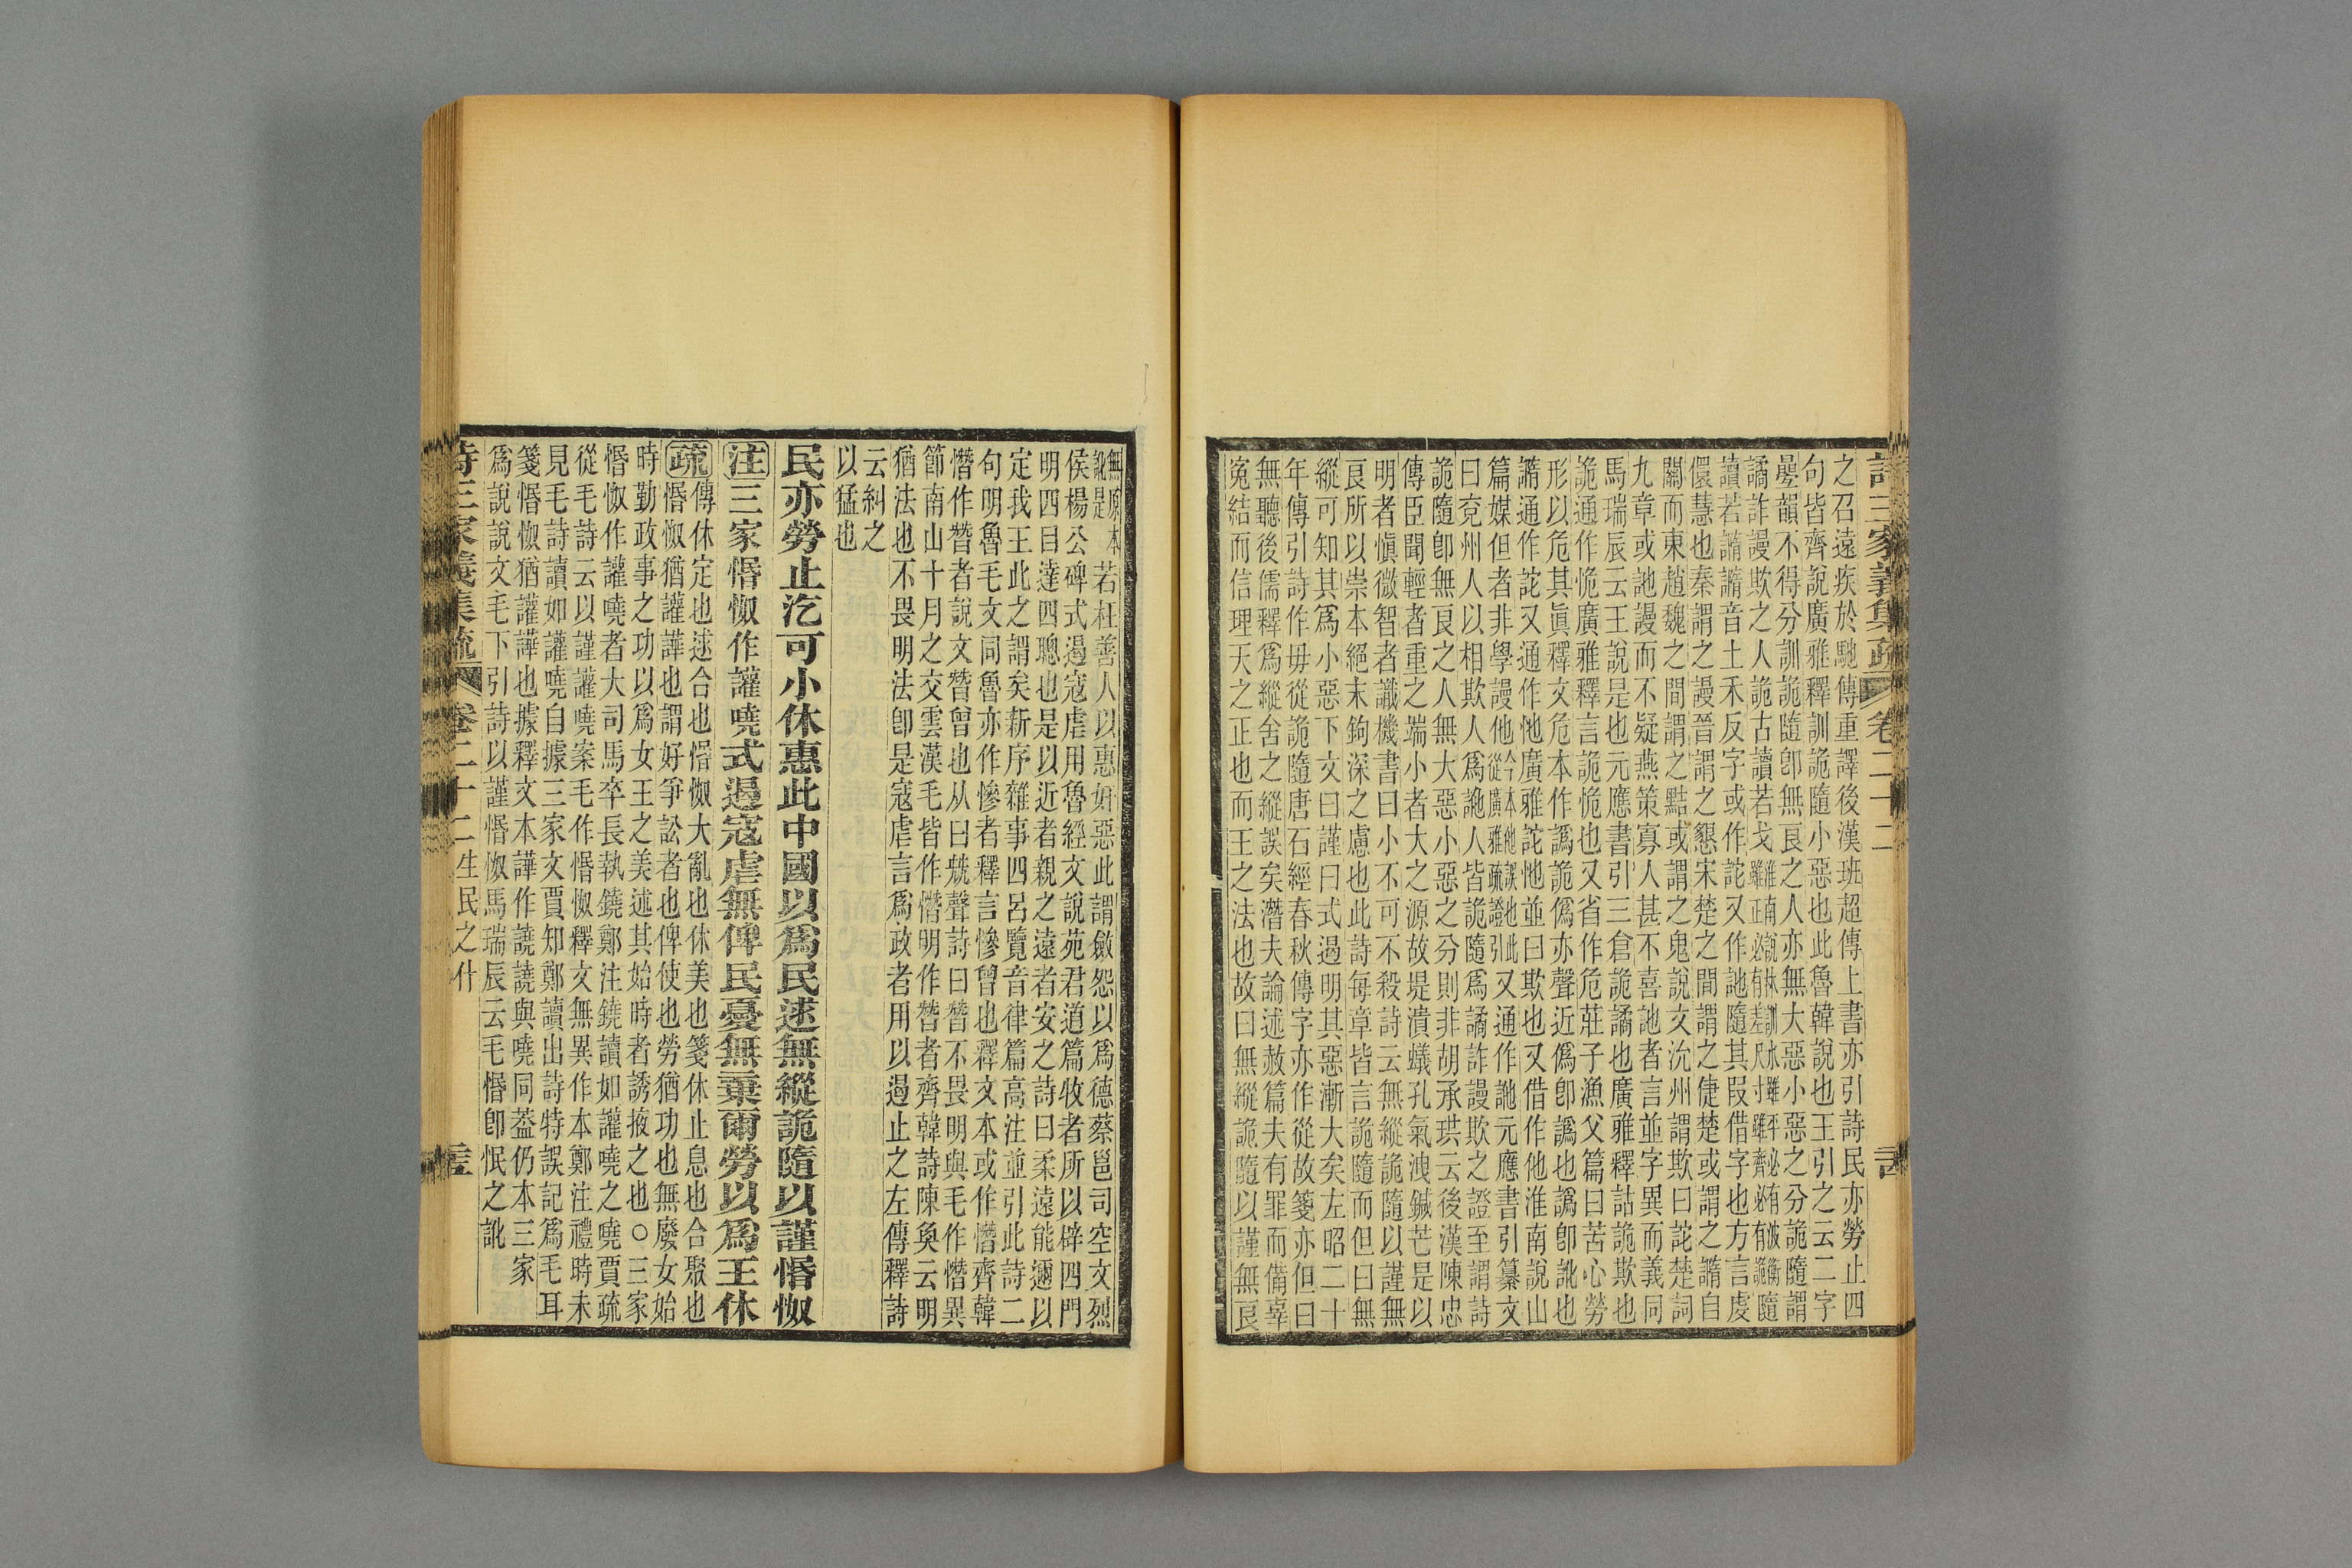 詩三家義集疏 卷二十二
之召遠疾於馳傳重譯後漢班超傳上書亦引詩民亦勞止四
句皆齊說廣雅釋訓詭隨小惡也此魯韓說也王引之云二字
疊韻不得分訓詭隨卽無良之人亦無大惡小惡之分詭隨謂
譎詐謾欺之人詭古讀若戈淮南說林訓水雖平必有波衡雖正必有差尺寸雖齊必有詭隨
讀若䜏䜏音土禾反字或作詑又作訑隨其叚借字也方言虔
儇慧也秦謂之謾晉謂之懇宋楚之間謂之倢楚或謂之䜏自
關而東趙魏之間謂之黠或謂之鬼說文沇州謂欺曰詑楚詞
九章或訑謾而不疑燕策寡人甚不喜訑者言並字異而義同
馬瑞辰云王說是也元應書引三倉詭譎也廣雅釋詁詭欺也
詭通作恑廣雅釋言詭恑也又省作危莊子漁父篇曰苦心勞
形以危其眞釋文危本作譌詭僞亦聲近僞卽譌也譌卽訛也
䜏通作詑又通作忚廣雅詑忚並曰欺也又借作他淮南說山
篇媒但者非學謾他今本他誤也此從廣雅疏證引又通作訑元應書引纂文
曰兗州人以相欺人爲訑人皆詭隨爲譎詐謾欺之證至謂詩
詭隨卽無良之人無大惡小惡之分則非胡承珙云後漢陳忠
傳臣聞輕者重之端小者大之源故堤潰蟻孔氣洩鍼芒是以
明者愼微智者識機書曰小不可不殺詩云無縱詭隨以謹無
良所以崇本絕末鉤深之慮也此詩每章皆言詭隨而但曰無
縱可知其爲小惡下文曰謹曰式遏明其惡漸大矣左昭二十
年傳引詩作毋從詭隨唐石經春秋傳字亦作從故箋亦但曰
無聽後儒釋爲縱舍之縱誤矣潛夫論述赦篇夫有罪而備辜
寃結而信理天之正也而王之法也故曰無縱詭隨以謹無良
無原本訛是若枉善人以惠奸惡此謂斂怨以爲德蔡邕司空文烈
侯楊公碑式遏寇虐用魯經文說苑君道篇牧者所以辟四門
明四目達四聰也是以近者親之遠者安之詩曰柔遠能邇以
定我王此之謂矣新序雜事四呂覽音律篇高注並引此詩二
句明魯毛文同魯亦作慘者釋言慘曾也釋文本或作憯齊韓
憯作朁者說文朁曾也从曰兟聲詩曰朁不畏明與毛作憯異
節南山十月之交雲漢毛皆作憯明作朁者齊韓詩陳奐云明
猶法也不畏明法卽是寇虐言爲政者用以遏止之左傳釋詩
云糾之
以猛也
民亦勞止汔可小休惠此中國以爲民逑無縱詭隨以謹惛怓
注三家惛怓作讙嘵式遏寇虐無俾民憂無棄爾勞以爲王休
疏傳休定也逑合也惛怓大亂也休美也箋休止息也合聚也
惛怓猶讙譁也謂好爭訟者也俾使也勞猶功也無廢女始
時勤政事之功以爲女王之美述其始時者誘掖之也○三家
惛怓作讙嘵者大司馬卒長執鐃鄭注鐃讀如讙嘵之嘵賈疏
從毛詩云以謹讙嘵案毛作惛怓釋文無異作本鄭注禮時未
見毛詩讀如讙嘵自據三家文賈知鄭讀出詩特誤記爲毛耳
箋惛怓猶讙譁也據釋文本譁作譊譊與嘵同蓋仍本三家
爲說說文毛下引詩以謹惛怓馬瑞辰云毛惛卽怋之訛
詩三家義集疏 卷二十二 生民之什